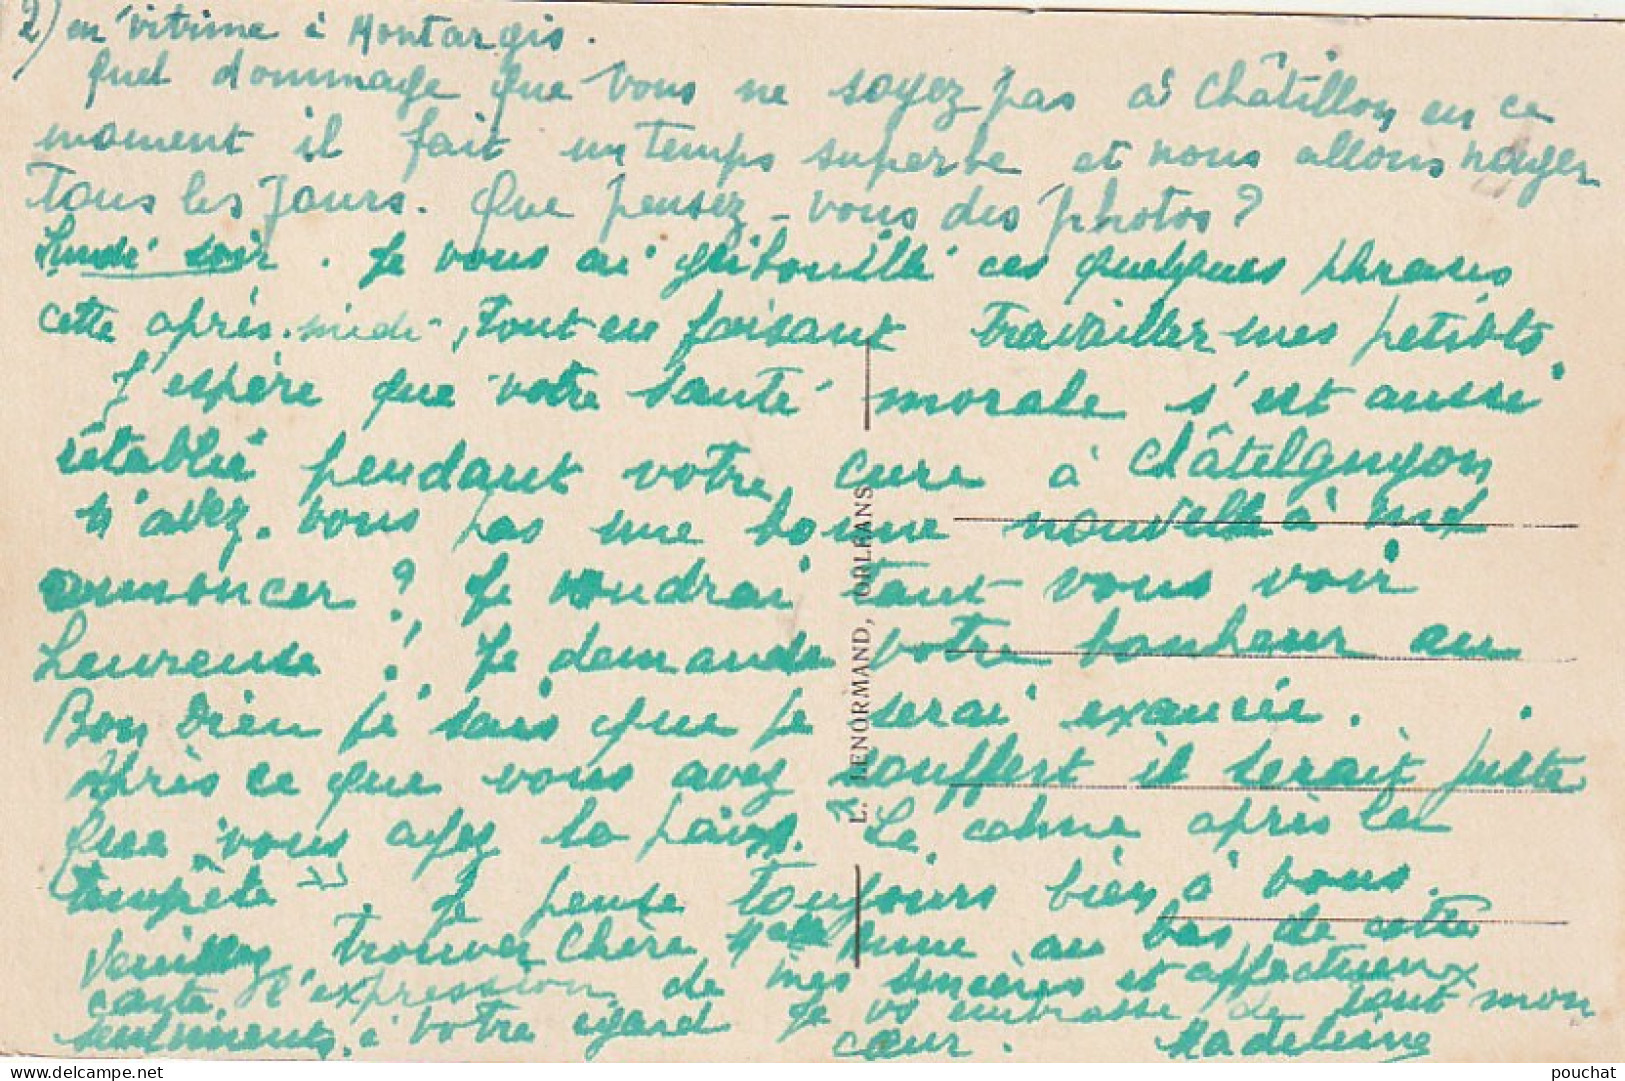 2) en vitrine à Montargis.
Quel dommage que vous ne soyez pas à Châtillon en ce
moment il fait un temps superbe et nous allons nager
tous les jours. Que pensez-vous des photos ?
Lundi soir. Je vous ai gribouillé ces quelques phrases
cette après-midi, tout en faisant travailler mes petiots.
J'espère que votre santé morale s'est aussi
rétablie pendant votre cure à Châtelguyon
N'avez-vous pas une bonne nouvelle à me
annoncer ? Je voudrai tant vous voir
heureuse ! Je demande votre bonheur au
Bon Dieu je sais que je serai exaucée.
Après ce que vous avez souffert il serait juste
que vous ayez la paix. "Le calme après la
tempête". Je pense toujours bien à vous.
Veuillez trouver Chère Melle Anne au bas de cette
carte l'expression de mes sincères et affectueux
sentiments à votre égard Je vs embrasse de tout mon
cœur. Madeleine
L. LENORMAND, ORLEANS
pouchat